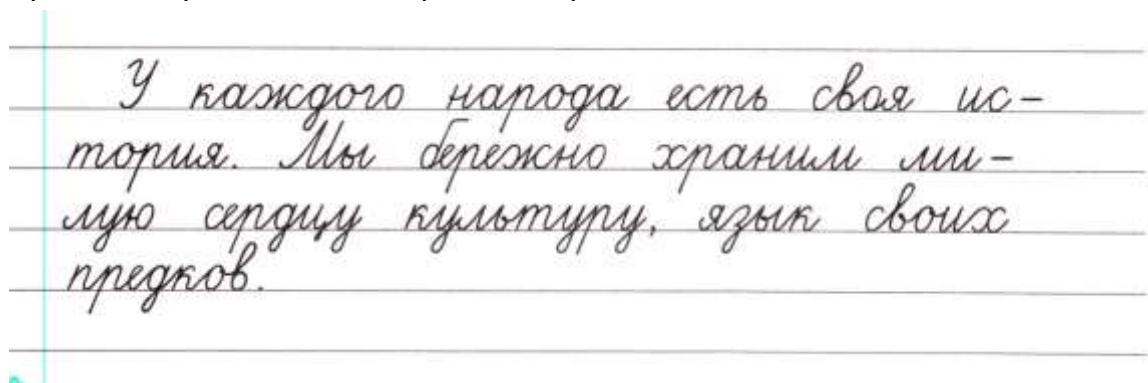 У каждого народа есть своя ис-
тория. Мы бережно храним ми-
лую сердцу культуру, язык своих
предков.